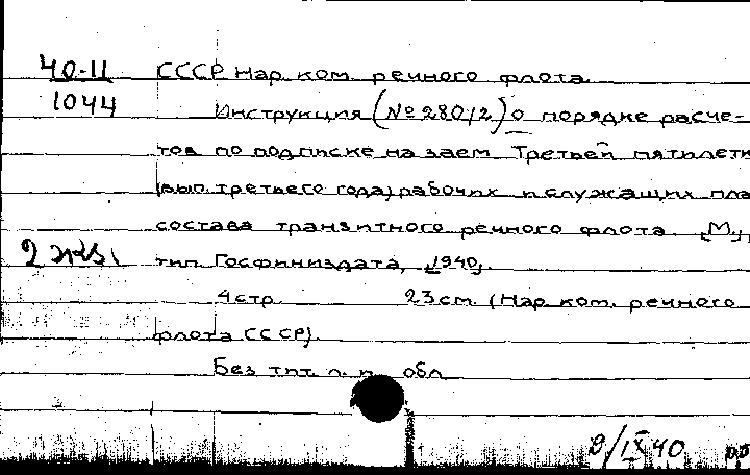 40-11
1044
СССР Нар. ком. речного флота.
Инструкция (№ 280/2) о порядке расче-
тов по подписке на заем Третьей пятилетк
(вып. третьего года) рабочих и служащих пла
состава транзитного речного флота. [М.],
2 экз.
тип. Госфиниздата, [1940].
4 стр. 23 см. (Нар. ком. речного
флота СССР).
Без тит. л. и обл.
2/IX 40